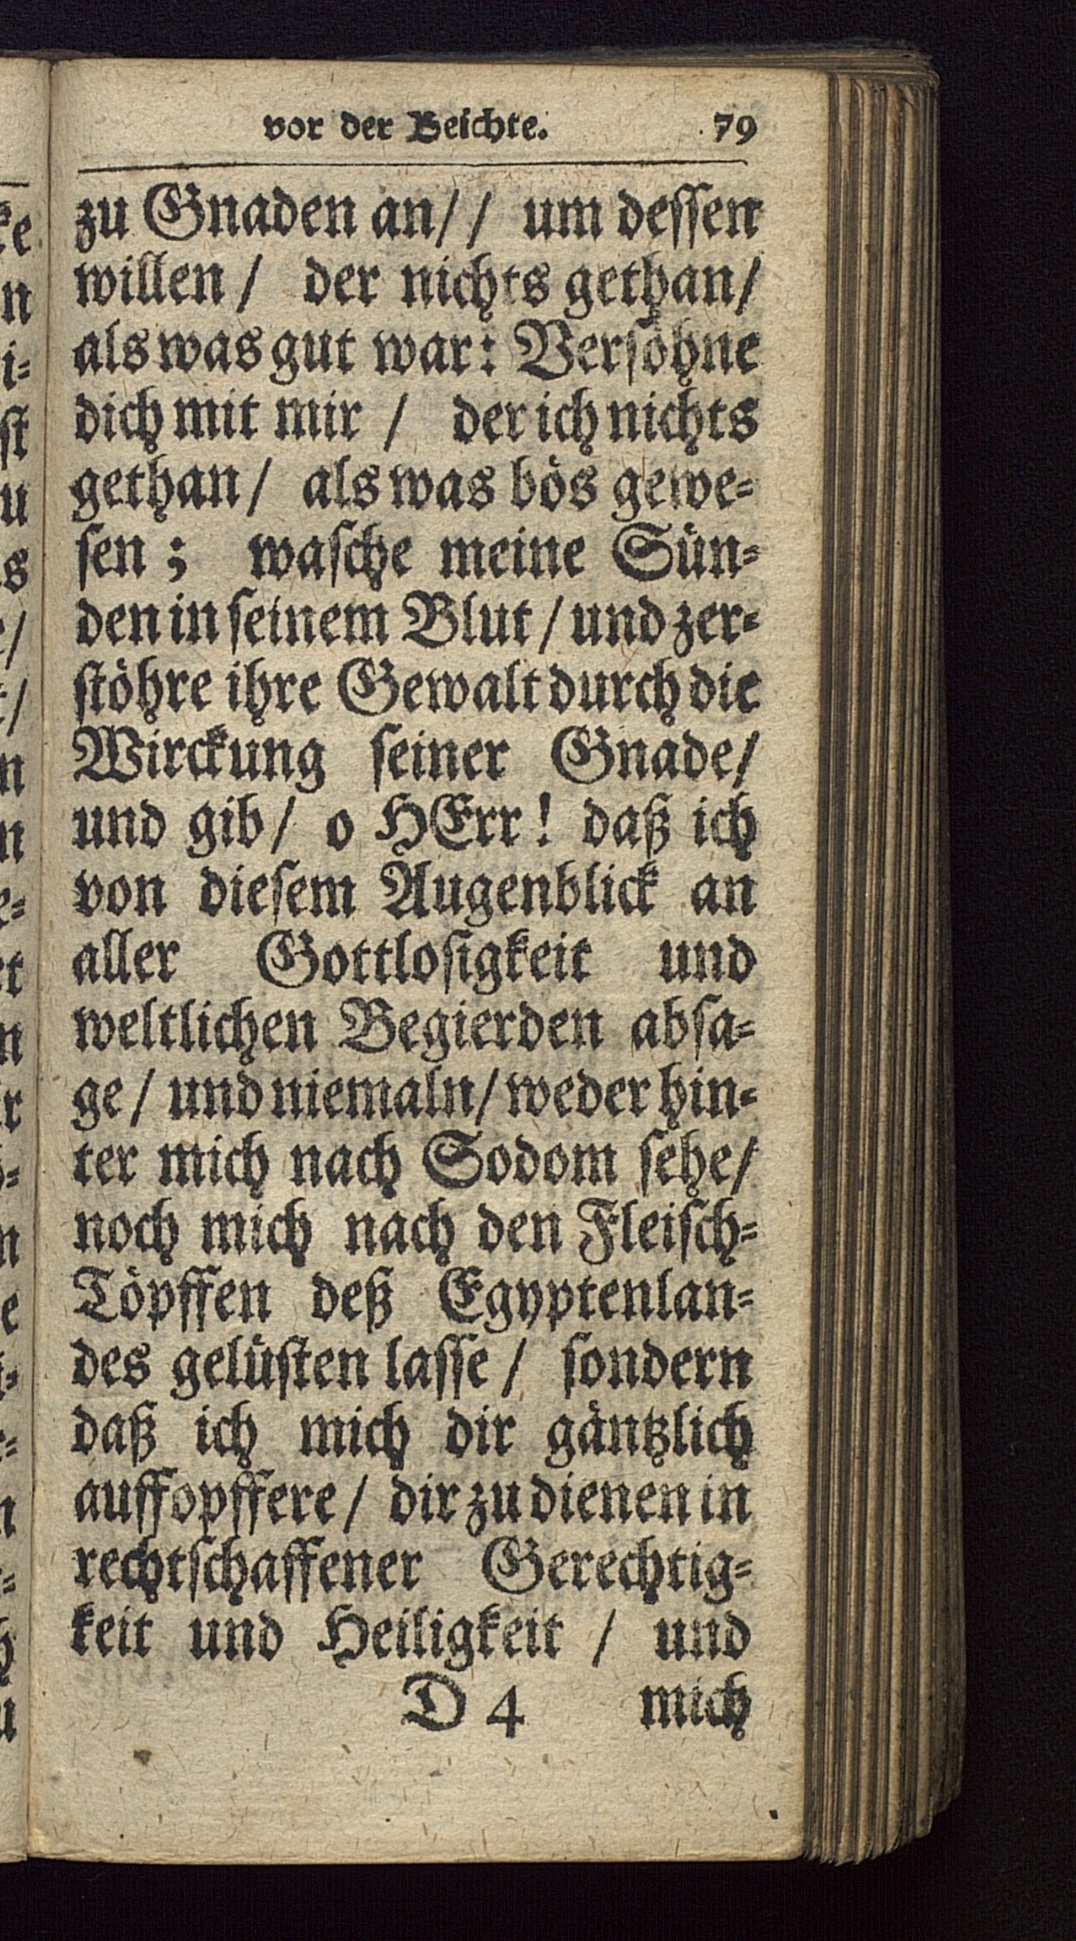 vor der Beichte. 79
zu Gnaden an// um dessen
willen / der nichts gethan/
als was gut war: Versöhne
dich mit mir / der ich nichts
gethan/ als was bös gewe-
sen ; wasche meine Sün-
den in seinem Blut / und zer-
stöhre ihre Gewalt durch die
Wirckung seiner Gnade/
und gib/ o HErr! daß ich
von diesem Augenblick an
aller Gottlosigkeit und
weltlichen Begierden absa-
ge / und niemaln/ weder hin-
ter mich nach Sodom sehe/
noch mich nach den Fleisch-
Töpffen deß Egyptenlan-
des gelüsten lasse / sondern
daß ich mich dir gäntzlich
auffopffere / dir zu dienen in
rechtschaffener Gerechtig-
keit und Heiligkeit / und
D 4 mich